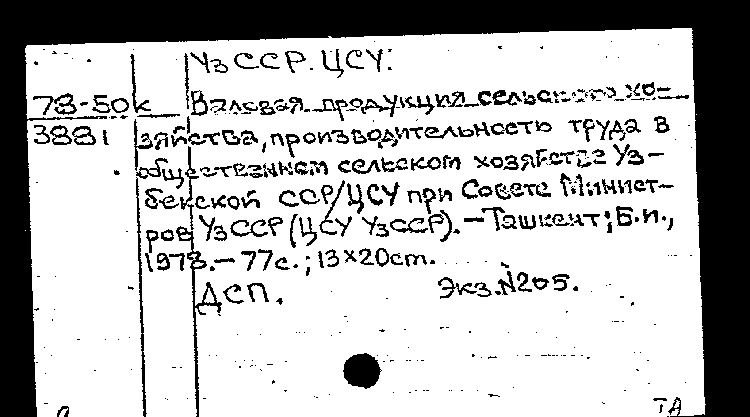 УзССР. ЦСУ.
78-50к Валовая продукция сельского хо-
3881 зяйства, производительность труда в
общественном сельском хозяйстве Уз-
бекской ССР/ЦСУ при Совете Минист-
ров УзССР (ЦСУ УзССР). - Ташкент; Б.и.,
1978. - 77с.; 13×20cm.
ДСП. Экз.№205.
ТА